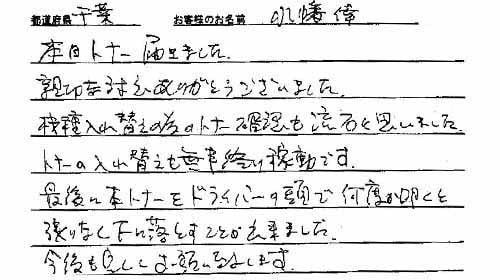 都道府県 千葉 お客様のお名前 水幡 偉
本日トナー届きました。
親切な対応ありがとうございました。
機種入れ替えの為のトナー確認も流石と思いました。
トナーの入れ替えも無事終り稼動です。
最後に本トナーをドライバーの頭で何度か叩くと
残りなく下に落とすことが出来ました。
今後も宜しくお願いいたします。